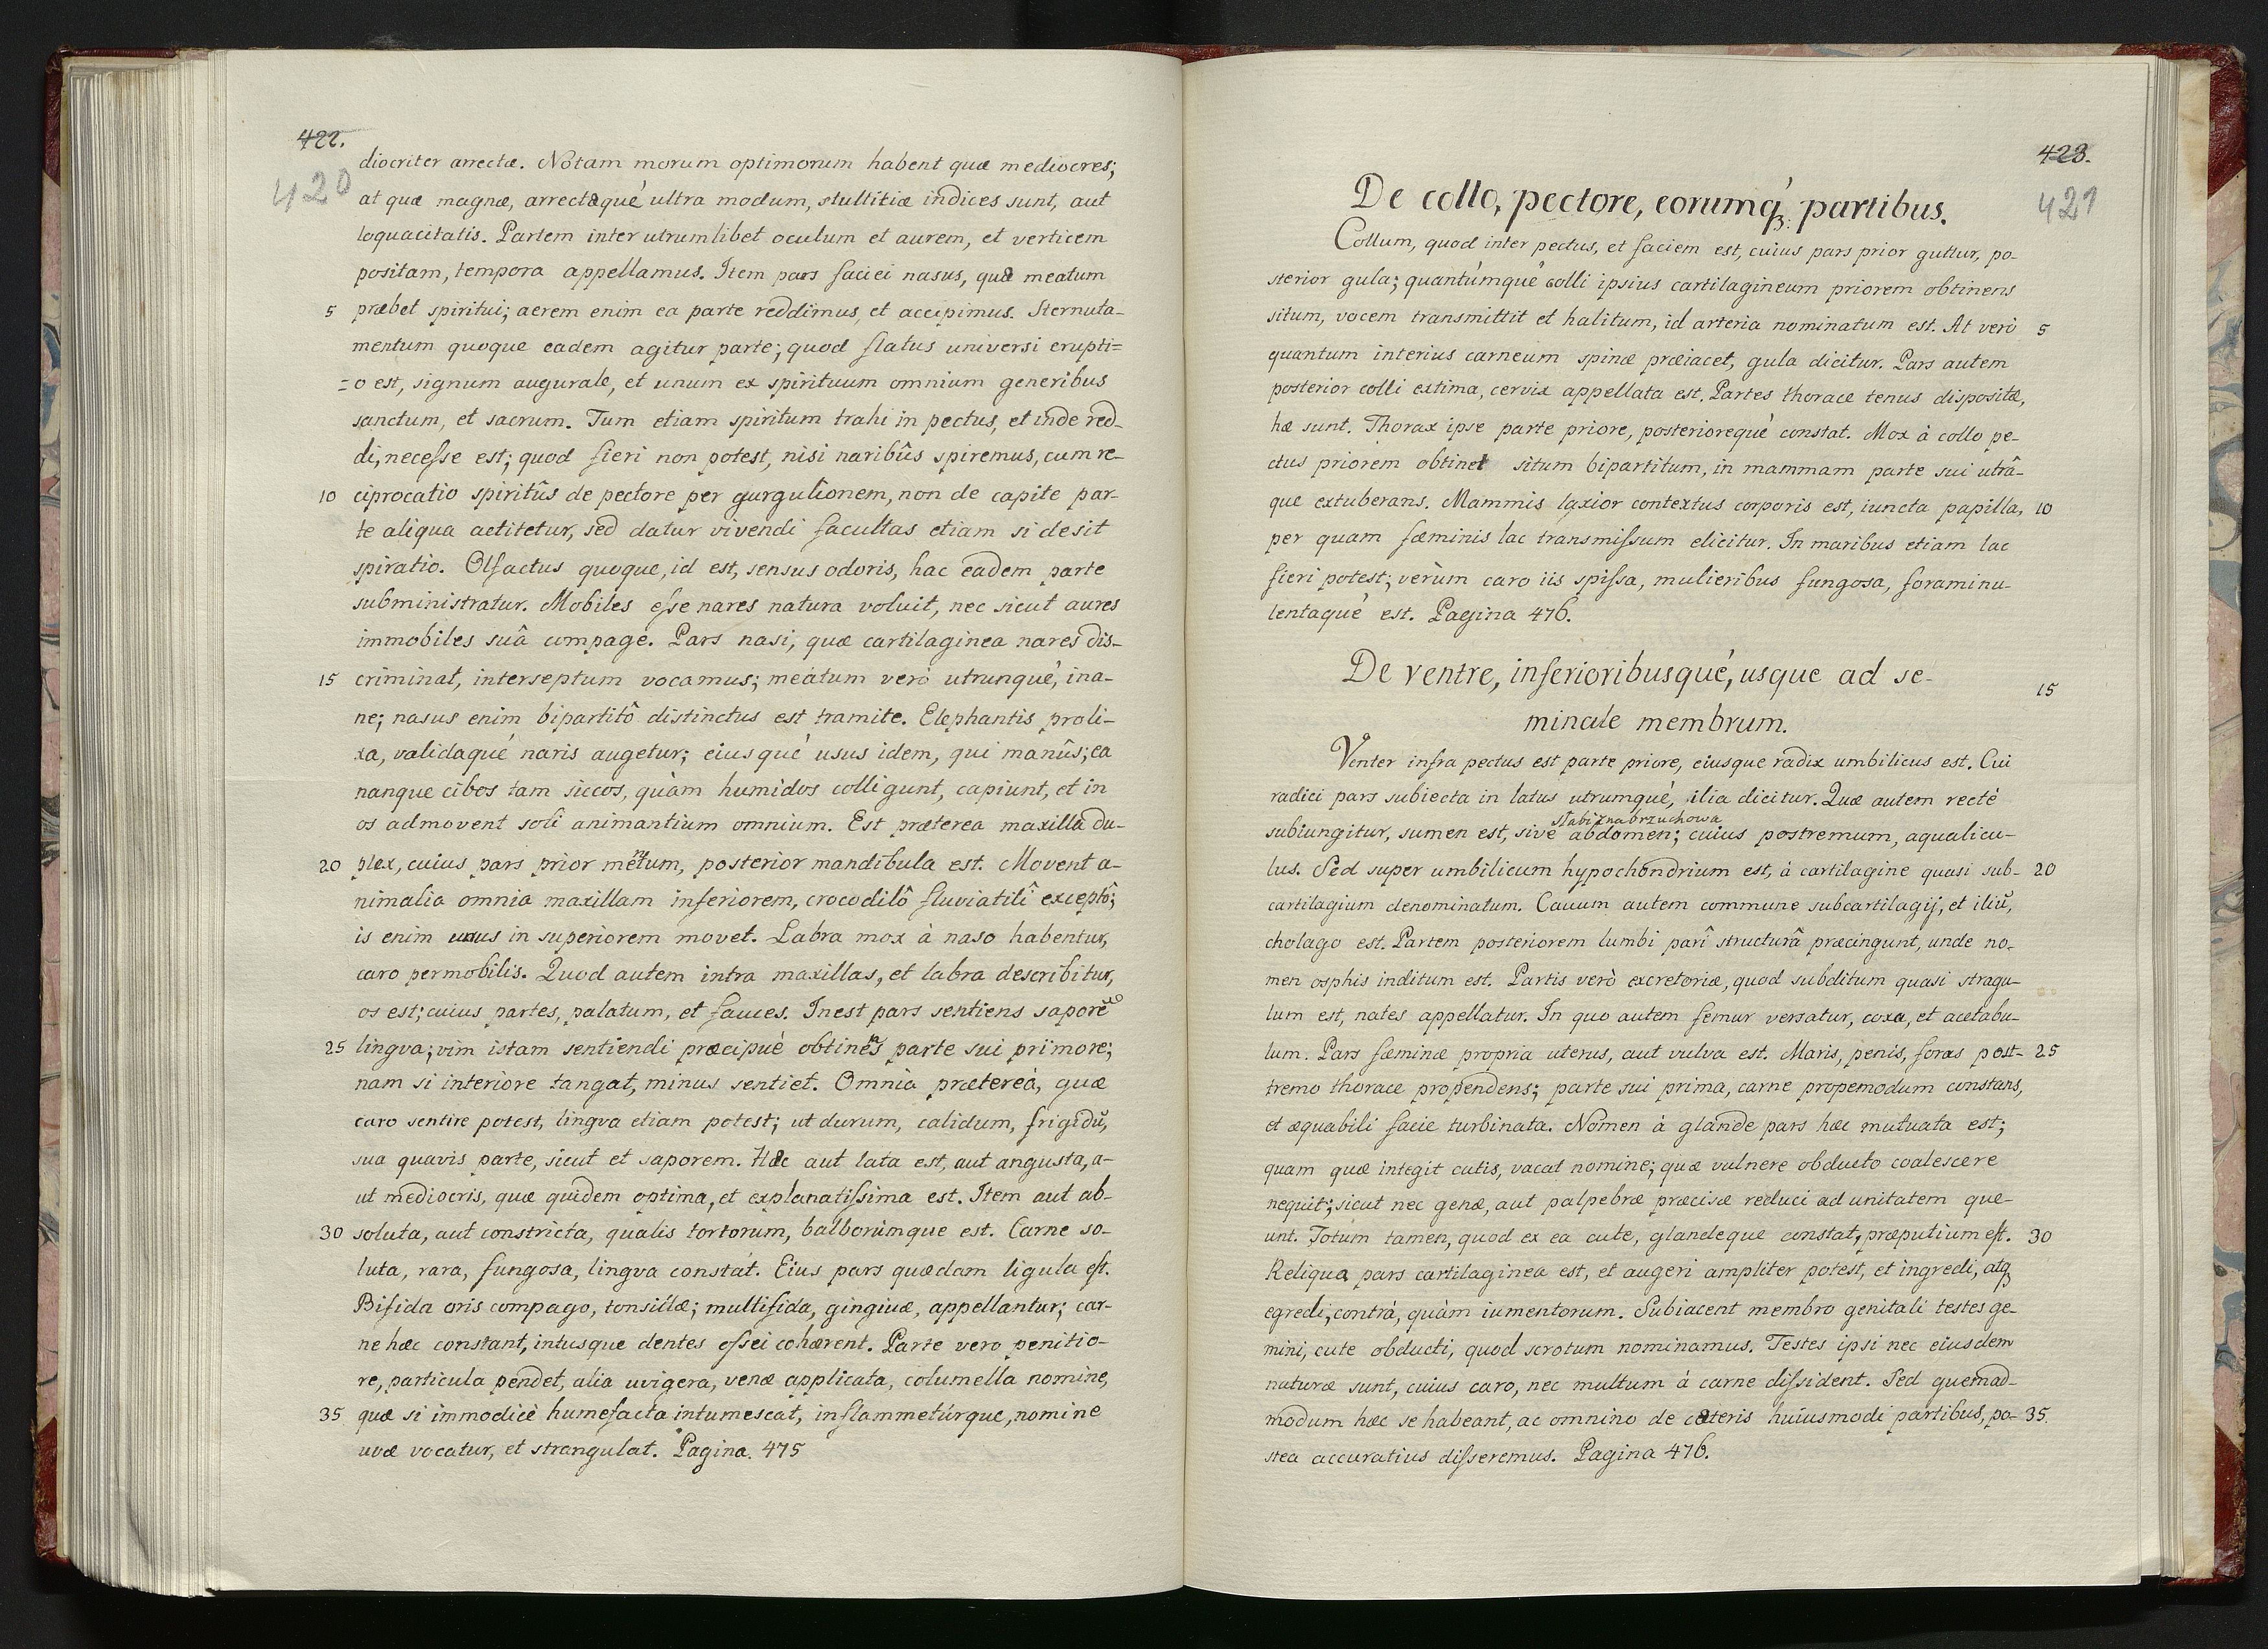 422.
420
diocriter arrectæ. Notam morum optimorum habent quæ mediocres;
at quæ magnæ, arrectæquè ultra modum, stultitiæ indices sunt, aut
loquacitatis. Partem inter utrumlibet oculum et aurem, et verticem
positam, tempora appellamus. Item pars faciei nasus, quæ meatum
5 præbet spiritui; aerem enim ea parte reddimus, et accipimus. Sternuta-
mentum quoque eadem agitur parte; quod flatus universi erupti=
=o est, signum augurale, et unum ex spirituum omnium generibus
sanctum, et sacrum. Tum etiam spiritum trahi in pectus, et inde red-
di, necesse est; quod fieri non potest, nisi naribûs spiremus, cum re-
10 ciprocatio spiritûs de pectore per gurgulionem, non de capite par-
te aliqua actitetur, sed datur vivendi facultas etiam si desit
spiratio. Olfactus quoque, id est, sensus odoris, hac eadem parte
subministratur. Mobiles esse nares natura voluit, nec sicut aures
immobiles suâ compage. Pars nasi, quæ cartilaginea nares dis-
15 criminat, interseptum vocamus; meatum verò utrunquè, ina-
ne; nasus enim bipartitô distinctus est tramite. Elephantis proli-
xa, validaquè naris augetur; eiusquè usus idem, qui manûs; ea
nanque cibos tam siccos, quàm humidos colligunt, capiunt, et in
os admovent soli animantium omnium. Est præterea maxilla du-
20 plex, cuius pars prior mentum, posterior mandibula est. Movent a-
nimalia omnia maxillam inferiorem, crocodilô fluviatilî exceptô;
is enim unus in superiorem movet. Labra mox à naso habentur,
caro permobilis. Quod autem intra maxillas, et labra describitur,
os est; cuius partes, palatum, et fauces. Inest pars sentiens saporē
25 lingva; vim istam sentiendi præcipuè obtinens parte sui primore;
nam si interiore tangat, minus sentiet. Omnia prætereà, quæ
caro sentire potest, lingva etiam potest; ut durum, calidum, frigidū,
sua quavis parte, sicut et saporem. Hæc aut lata est, aut angusta, a-
ut mediocris, quæ quidem optima, et explanatissima est. Item aut ab-
30 soluta, aut constricta, qualis tortorum, balborùmque est. Carne so-
luta, rara, fungosa, lingva constat. Eius pars quædam ligula est.
Bifida oris compago, tonsillæ; multifida, gingiuæ, appellantur; car-
ne hæc constant, intusque dentes ossei cohærent. Parte vero penitio-
re, particula pendet, alia uvigera, venæ applicata, columella nomine,
35 quæ si immodicè humefacta intumescat, inflammetúrque, nomine
uvæ vocatur, et strangulat. Pagina. 475
423.
421
De collo, pectore, eorumq; partibus.
Collum, quod inter pectus, et faciem est, cuius pars prior guttur, po-
sterior gula; quantùmquè colli ipsius cartilagineum priorem obtinens
situm, vocem transmittit et halitum, id arteria nominatum est. At verò 5
quantum interius carneum spinæ præiacet, gula dicitur. Pars autem
posterior colli extima, cervix appellata est. Partes thorace tenus dispositæ,
hæ sunt. Thorax ipse parte priore, posteriorequè constat. Mox à collo pe-
ctus priorem obtinet situm bipartitum, in mammam parte sui utrâ-
que extuberans. Mammis laxior contextus corporis est, iuncta papilla, 10
per quam fæminis lac transmissum elicitur. In maribus etiam lac
fieri potest; verùm caro iis spissa, mulieribus fungosa, foraminu-
lentaquè est. Pagina 476.
De ventre, inferioribusquè, usque ad se- 15
minale membrum.
Venter infra pectus est parte priore, eiusque radix umbilicus est. Cui
radici pars subiecta in latus utrumquè, ilia dicitur. Quæ autem rectè
słabiznabrzuchowa
subiungitur, sumen est, sivè abdomen; cuius postremum, aqualicu-
lus. Sed super umbilicum hypochondrium est, à cartilagine quasi sub- 20
cartilagium denominatum. Cauum autem commune subcartilagij, et iliū,
cholago est. Partem posteriorem lumbi parî structurâ præcingunt, unde no-
men osphis inditum est. Partis verò excretoriæ, quod subditum quasi stragu-
lum est, nates appellatur. In quo autem femur versatur, coxa, et acetabu-
lum. Pars fæminæ propria uterus, aut vulva est. Maris, penis, foras post- 25
tremo thorace propendens; parte sui prima, carne propemodum constans,
et æquabili facie turbinata. Nomen à glande pars hæc mutuata est;
quam quæ integit cutis, vacat nomine; quæ vulnere obducto coalescere
nequit; sicut nec genæ, aut palpebræ præcisæ reduci ad unitatem que-
unt. Totum tamen, quod ex ea cute, glandeque constat, præputium est. 30
Reliqua pars cartilaginea est, et augeri ampliter potest, et ingredi, atq;
egredi, contrà, quàm iumentorum. Subiacent membro genitali testes ge-
mini, cute obducti, quod scrotum nominamus. Testes ipsi nec eiusdem
naturæ sunt, cuius caro, nec multum à carne dissident. Sed quemad-
modum hæc se habeant, ac omnino de cæteris huiusmodi partibus, po- 35.
stea accuratius disseremus. Pagina 476.